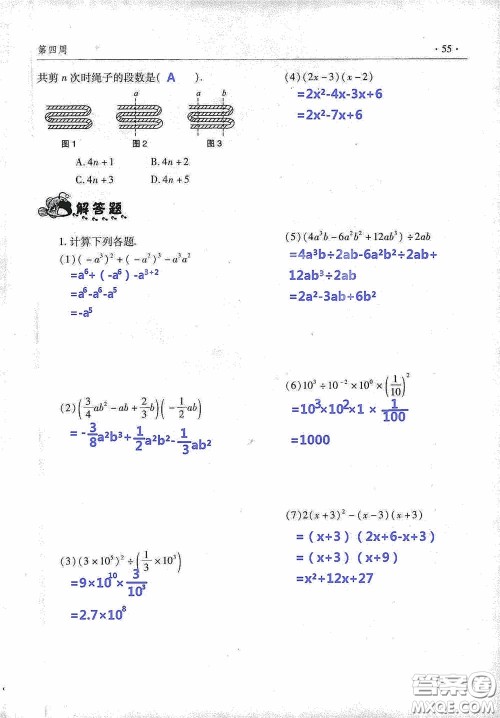 第四周
· 55 ·
共剪 n 次时绳子的段数是( A ).
a a b
图1 图2 图3
A. 4n+1 B. 4n+2
C. 4n+3 D. 4n+5
解答题
1. 计算下列各题.
(1) (-a³)²+(-a²)³-a³a²
=a⁶+(-a⁶)-a³⁺²
=a⁶-a⁶-a⁵
=-a⁵
(2) (3/4 ab²-ab+2/3 b)(-1/2 ab)
= -3/8 a²b³+1/2 a²b²-1/3 ab²
(3) (3×10⁵)²÷(1/3×10³)
=9×10¹⁰×3/10³
=2.7×10⁸
(4) (2x-3)(x-2)
=2x²-4x-3x+6
=2x²-7x+6
(5) (4a³b-6a²b²+12ab³)÷2ab
=4a³b÷2ab-6a²b²÷2ab+
12ab³÷2ab
=2a²-3ab+6b²
(6) 10³÷10⁻²×10⁰×(1/10)²
=10³×10²×1×1/100
=1000
(7) 2(x+3)²-(x-3)(x+3)
=(x+3)(2x+6-x+3)
=(x+3)(x+9)
=x²+12x+27
答案圈
MXQE.COM